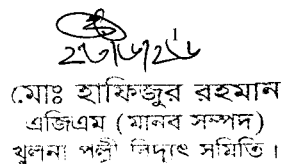 মোঃ হাফিজুর রহমান
এজিএম (মানব সম্পদ)
খুলনা পল্লী বিদ্যুৎ সমিতি।